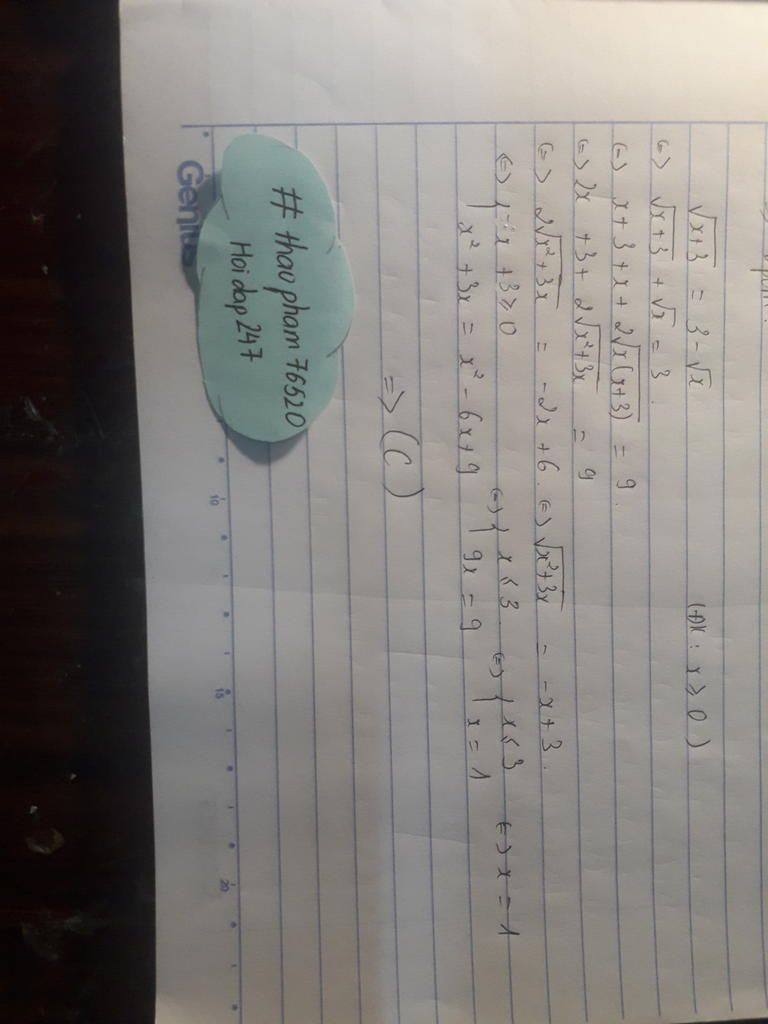 √x+3 = 3 - √x (ĐK : x ≥ 0)
(=) √x+3 + √x = 3.
(=) x + 3 + x + 2√x(x+3) = 9.
(=) 2x + 3 + 2√x²+3x = 9
(=) 2√x²+3x = -2x + 6. (=) √x²+3x = -x + 3.
(=) { -x + 3 ≥ 0 (=) { x ≤ 3. (=) { x ≤ 3 (=) x = 1
x² + 3x = x² - 6x + 9 9x = 9 x = 1
=> (C)
# thao pham 76520
Hoi dap 247
Genius
10
15
20